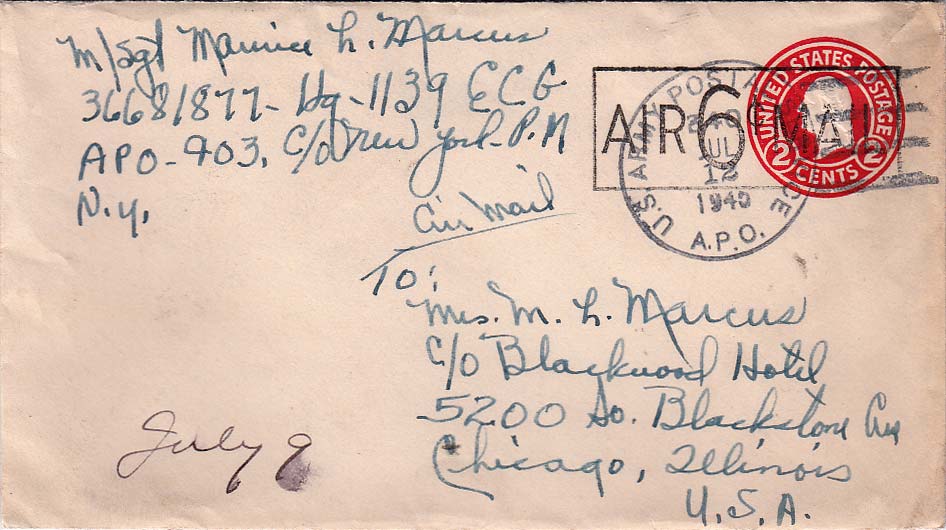 M/Sgt Maurice L. Marcus
36681877 - Hq - 1139 ECG
APO - 403, C/O New York - P.M
N.Y.
Air Mail
UNITED STATES POSTAGE
2 CENTS 2
AIR 6¢ MAIL
U.S. ARMY POSTAL
JUL
12
1945
A.P.O.
TO:
Mrs. M. L. Marcus
C/O Blackwood Hotel
5200 So. Blackstone Ave
Chicago, Illinois
U.S.A.
July 9